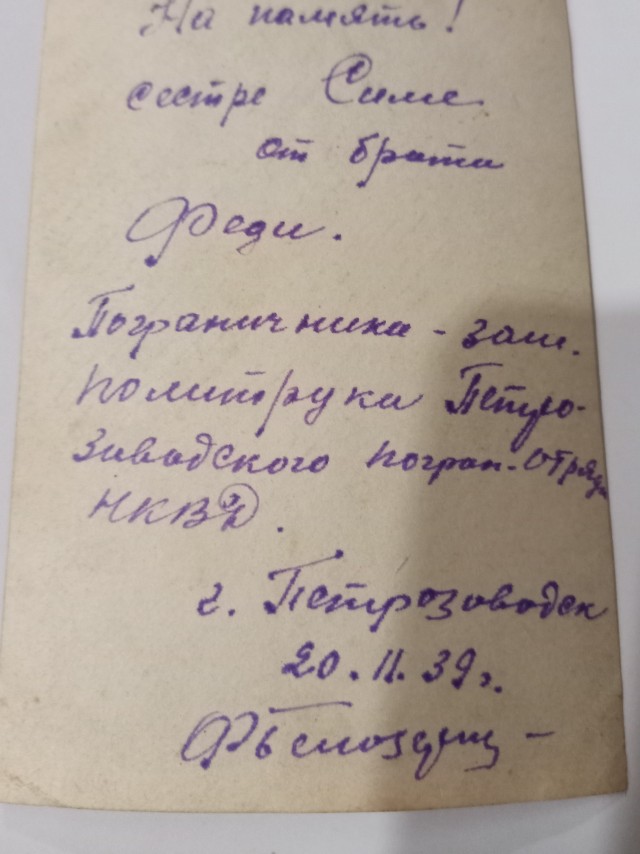 На память!
сестре Симе
от брата
Феди.
Пограничника - зам.
политрука Петро-
заводского погран. отряда
НКВД.
г. Петрозаводск
20.II.39г.